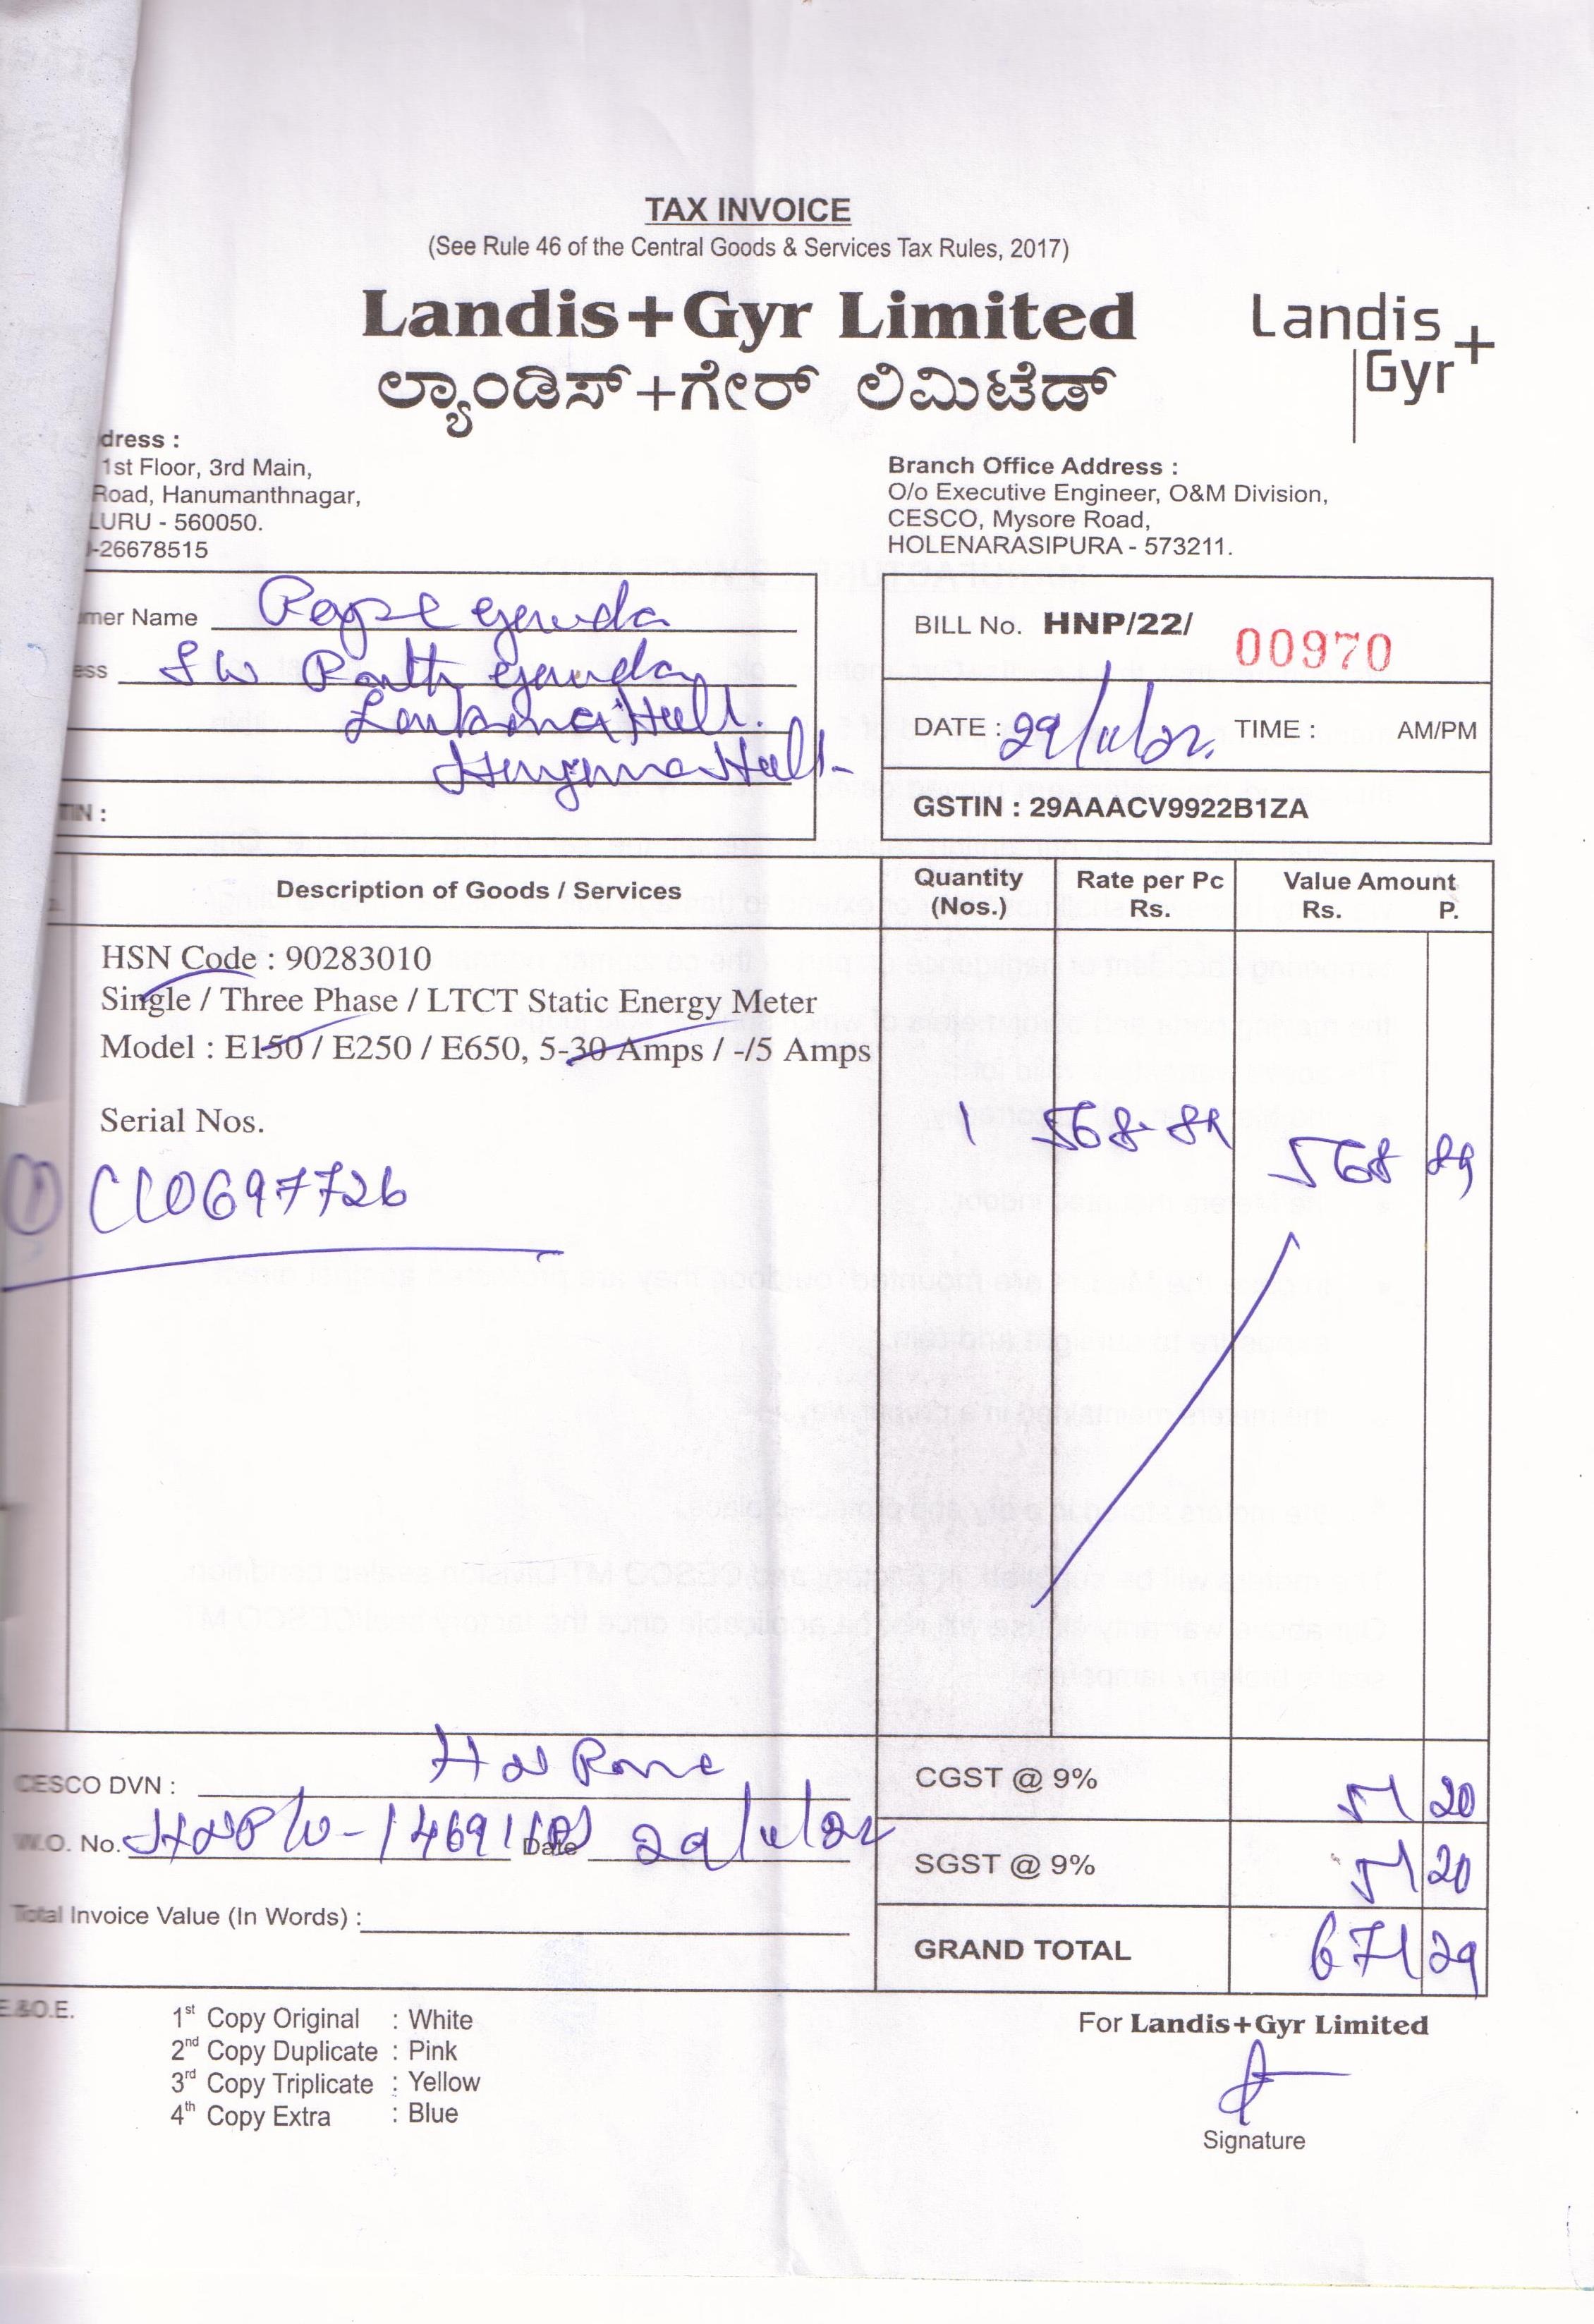 TAX INVOICE
(See Rule 46 of the Central Goods & Services Tax Rules, 2017)
Landis+Gyr Limited
ಲ್ಯಾಂಡಿಸ್+ಗೇರ್ ಲಿಮಿಟೆಡ್
Landis+
Gyr
dress :
1st Floor, 3rd Main,
Road, Hanumanthnagar,
LURU - 560050.
-26678515
Branch Office Address :
O/o Executive Engineer, O&M Division,
CESCO, Mysore Road,
HOLENARASIPURA - 573211.
mer Name
ess
TIN :
BILL No. HNP/22/ 00970
DATE : 29/11/22. TIME : AM/PM
GSTIN : 29AAACV9922B1ZA
Description of Goods / Services Quantity (Nos.) Rate per Pc Rs. Value Amount Rs. P.
HSN Code : 90283010
Single / Three Phase / LTCT Static Energy Meter
Model : E150 / E250 / E650, 5-30 Amps / -/5 Amps
Serial Nos. 1 568 89
① CC0697726
CESCO DVN :
W.O. No. Date 29/11/22
Total Invoice Value (In Words) :
CGST @ 9% 51 20
SGST @ 9% 51 20
GRAND TOTAL 671 29
E.&O.E.
1st Copy Original : White
2nd Copy Duplicate : Pink
3rd Copy Triplicate : Yellow
4th Copy Extra : Blue
For Landis+Gyr Limited
Signature